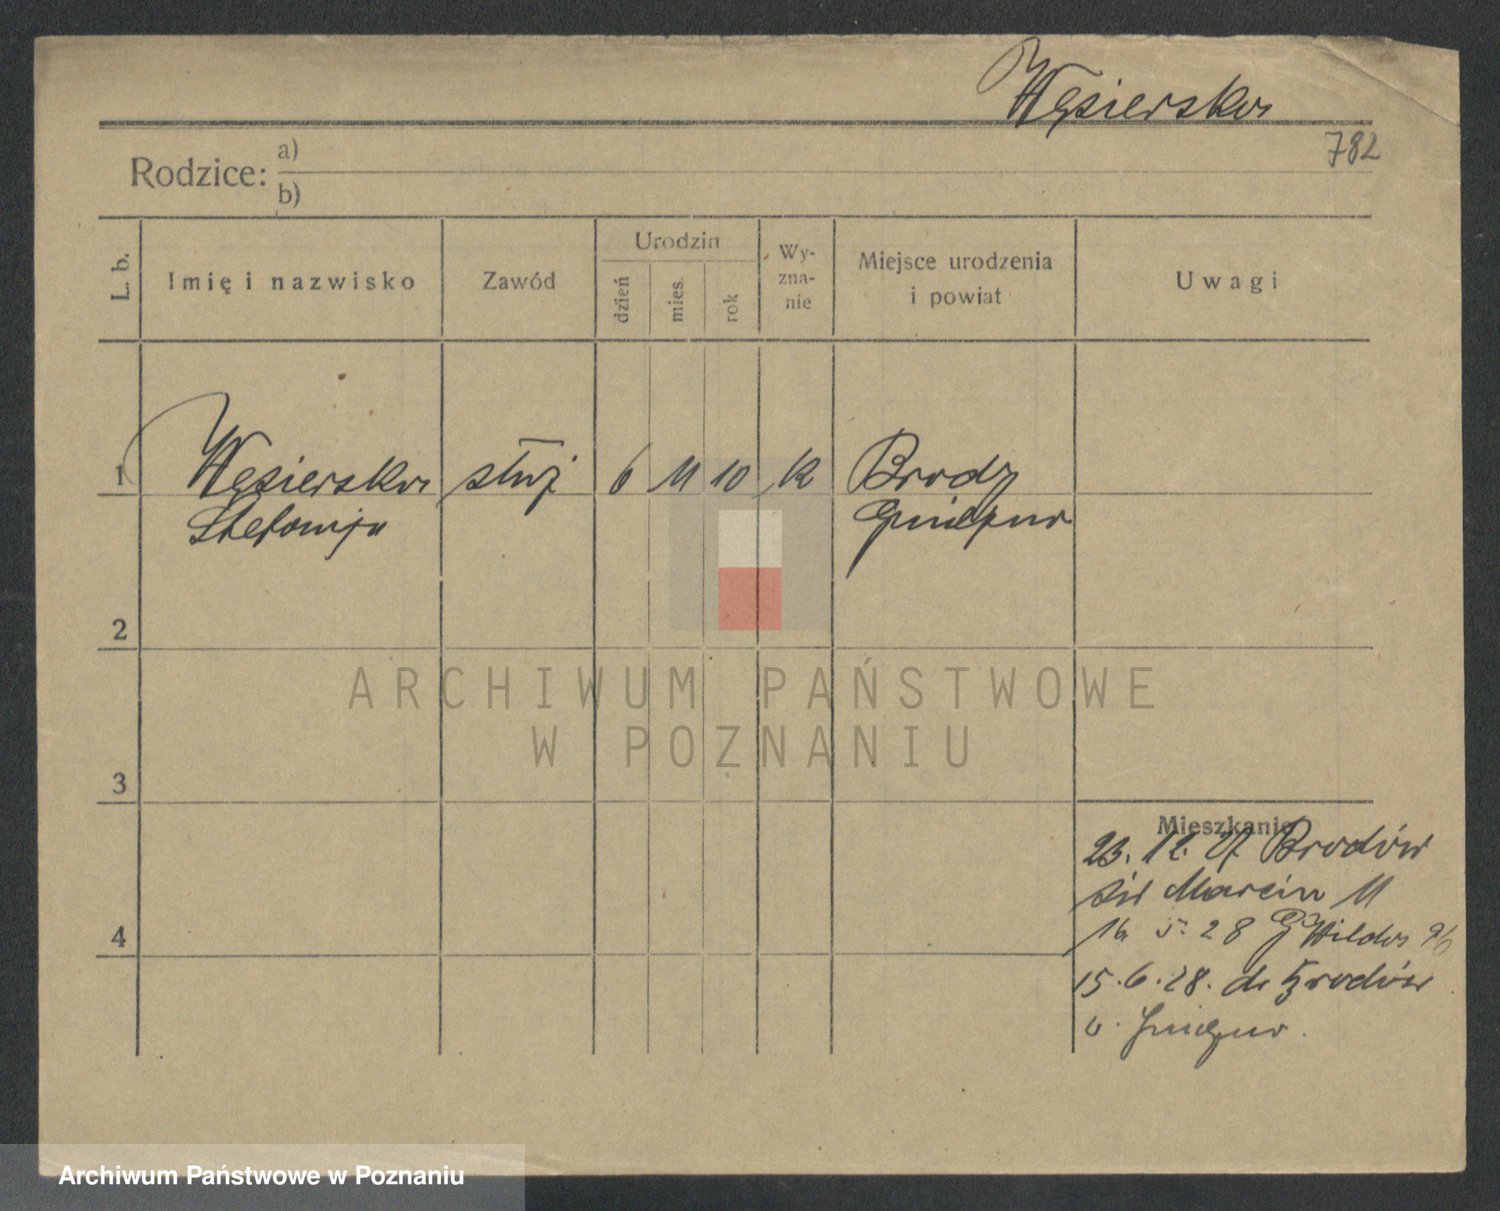 Węsierska
782
Rodzice: a)
b)
L. b.
Imię i nazwisko
Zawód
Urodzin
dzień
mies.
rok
Wy-
zna-
nie
Miejsce urodzenia
i powiat
Uwagi
1 Węsierska służ 6 11 10 k Brody
Stefanija
2
ARCHIWUM PAŃSTWOWE
W POZNANIU
3
Mieszkanie
23. 12. 27 Brodów
Św Marcin 11
16 5. 28 G Wilda
4
15. 6. 28. do Brodów
Archiwum Państwowe w Poznaniu